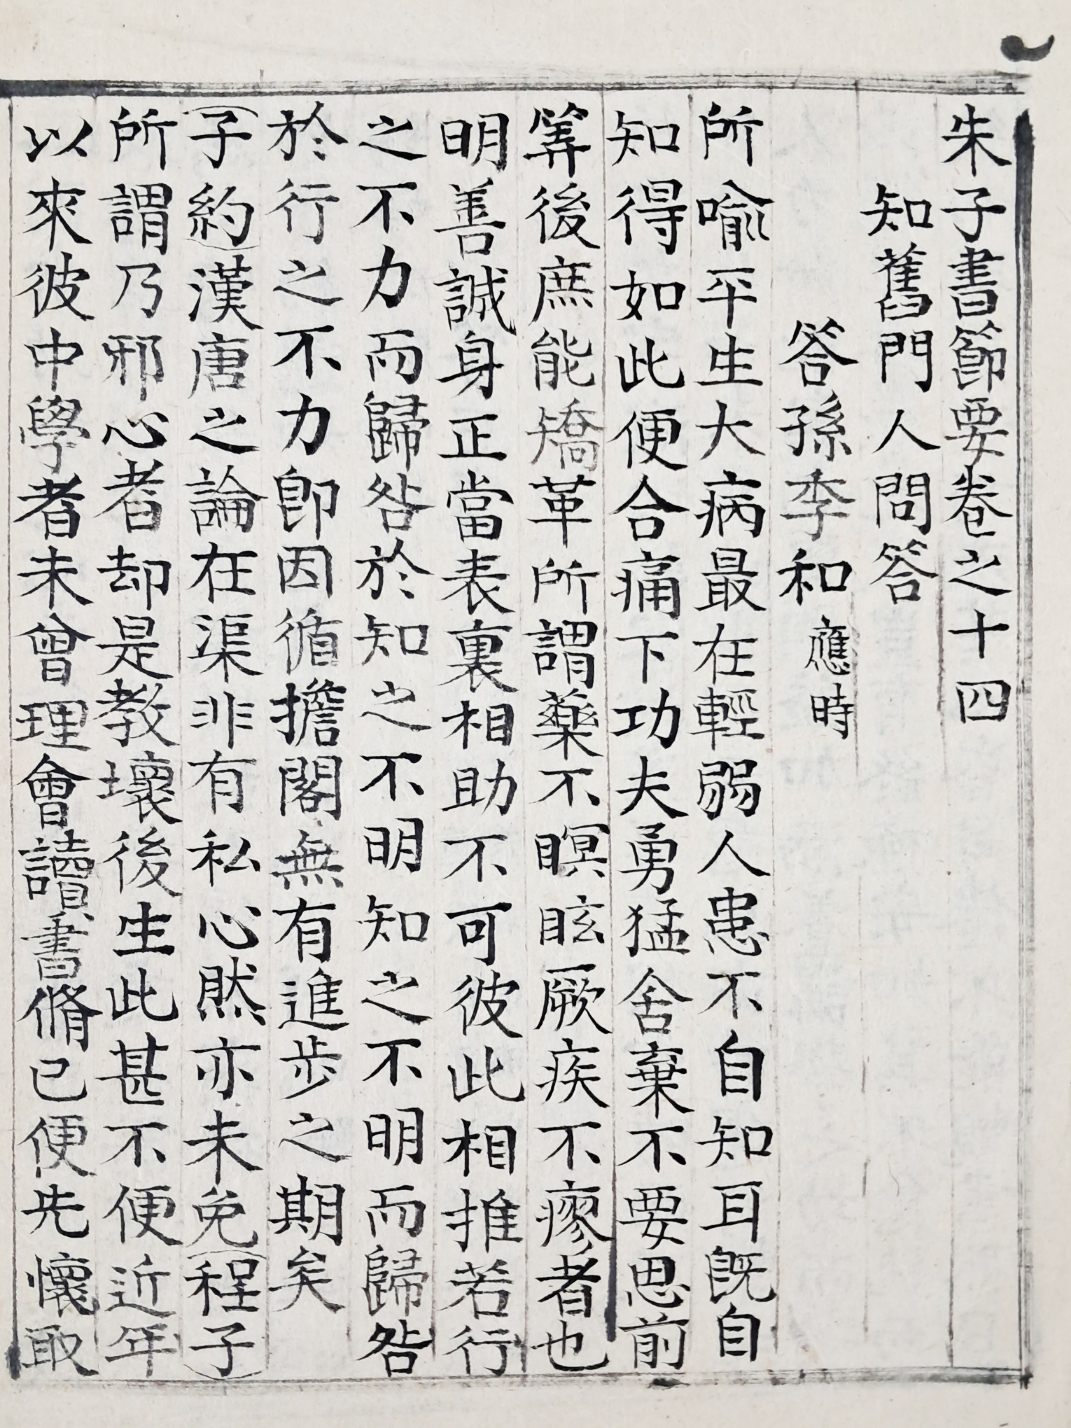 朱子書節要卷之十四
知舊門人問答
答孫季和應時
所喻平生大病最在輕弱人患不自知耳旣自
知得如此便合痛下功夫勇猛舍棄不要思前
筭後庶能矯革所謂藥不瞑眩厥疾不瘳者也
明善誠身正當表裏相助不可彼此相推若行
之不力而歸咎於知之不明知之不明而歸咎
於行之不力卽因循擔閣無有進步之期矣
子約漢唐之論在渠非有私心然亦未免程子
所謂乃邪心者却是教壞後生此甚不便近年
以來彼中學者未曾理會讀書脩己便先懷取